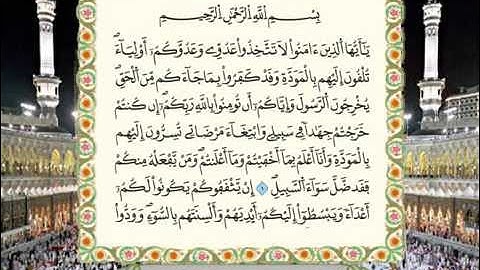 بِسْمِ اللَّهِ الرَّحْمَٰنِ الرَّحِيمِ
يَٰٓأَيُّهَا الَّذِينَ ءَامَنُوا لَا تَتَّخِذُوا عَدُوِّي وَعَدُوَّكُمْ أَوْلِيَآءَ
تُلْقُونَ إِلَيْهِم بِالْمَوَدَّةِ وَقَدْ كَفَرُوا بِمَا جَآءَكُم مِّنَ الْحَقِّ
يُخْرِجُونَ الرَّسُولَ وَإِيَّاكُمْ أَن تُؤْمِنُوا بِاللَّهِ رَبِّكُمْ إِن كُنتُمْ
خَرَجْتُمْ جِهَٰدًا فِي سَبِيلِي وَابْتِغَآءَ مَرْضَاتِي تُسِرُّونَ إِلَيْهِم
بِالْمَوَدَّةِ وَأَنَا أَعْلَمُ بِمَا أَخْفَيْتُمْ وَمَا أَعْلَنتُمْ وَمَن يَفْعَلْهُ مِنكُمْ
فَقَد ضَّلَّ سَوَآءَ السَّبِيلِ ١ إِن يَثْقَفُوكُمْ يَكُونُوا لَكُمْ
أَعْدَآءً وَيَبْسُطُوا إِلَيْكُمْ أَيْدِيَهُمْ وَأَلْسِنَتَهُم بِالسُّوٓءِ وَوَدُّوا